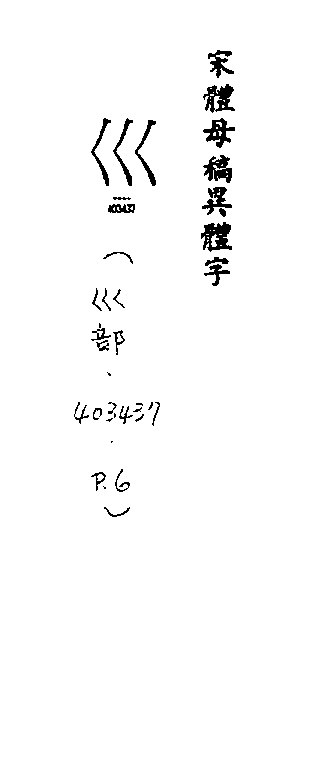 宋體母稿異體字
巛
403437
（巛部．403437．P.6）